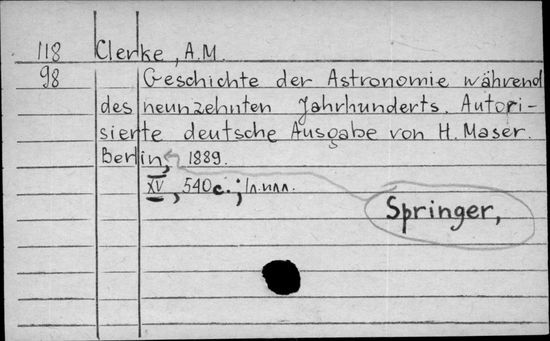 118 Clerke, A.M.
98 Geschichte der Astronomie während
des neunzehnten Jahrhunderts. Autori-
sierte deutsche Ausgabe von H. Maser.
Berlin, 1889.
XV, 540c.; 1л.илл.
Springer,